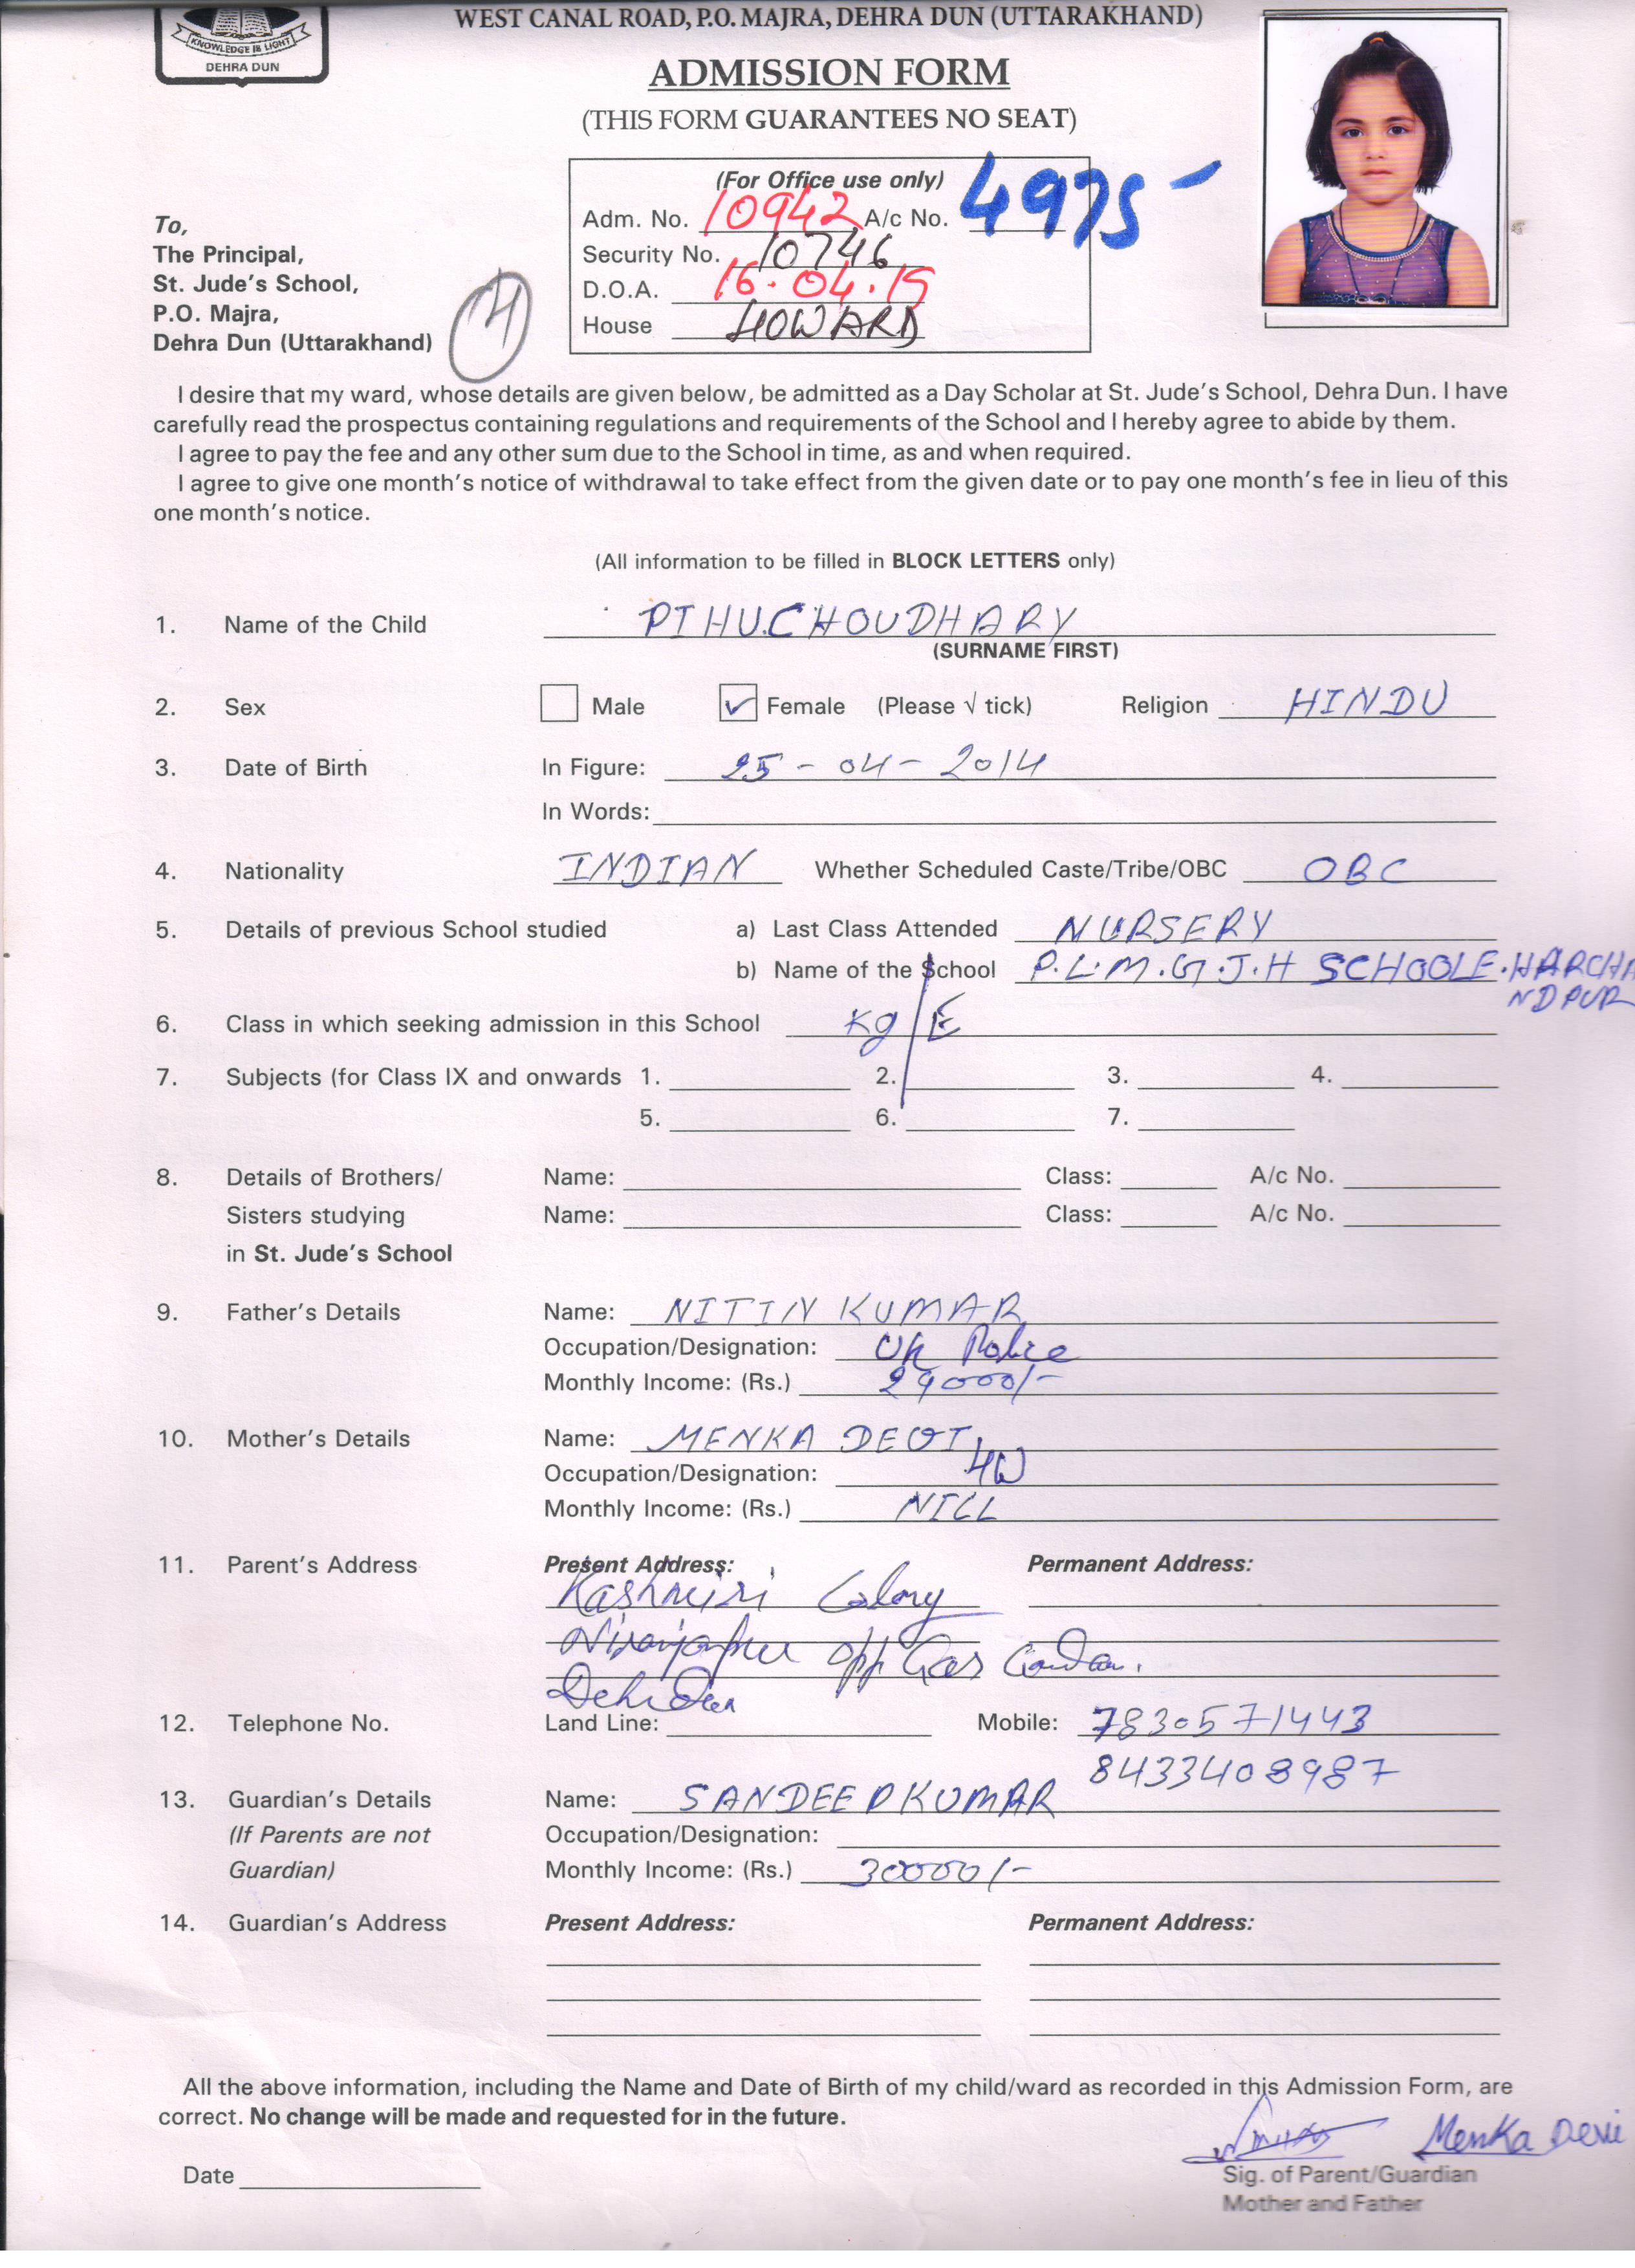 KNOWLEDGE IS LIGHT
DEHRA DUN
WEST CANAL ROAD, P.O. MAJRA, DEHRA DUN (UTTARAKHAND)
ADMISSION FORM
(THIS FORM GUARANTEES NO SEAT)
(For Office use only)
Adm. No. 10942 A/c No. 4975
Security No. 10746
D.O.A. 16.04.19
House HOWARD
To,
The Principal,
St. Jude's School,
P.O. Majra,
Dehra Dun (Uttarakhand)
I desire that my ward, whose details are given below, be admitted as a Day Scholar at St. Jude's School, Dehra Dun. I have
carefully read the prospectus containing regulations and requirements of the School and I hereby agree to abide by them.
I agree to pay the fee and any other sum due to the School in time, as and when required.
I agree to give one month's notice of withdrawal to take effect from the given date or to pay one month's fee in lieu of this
one month's notice.
(All information to be filled in BLOCK LETTERS only)
1. Name of the Child PIHU.CHOUDHARY
(SURNAME FIRST)
2. Sex Male ✓ Female (Please √ tick) Religion HINDU
3. Date of Birth In Figure: 25-04-2014
In Words:
4. Nationality INDIAN Whether Scheduled Caste/Tribe/OBC OBC
5. Details of previous School studied a) Last Class Attended NURSERY
b) Name of the School P.L.M.G.J.H SCHOOLE.HARCHA
NDPUR
6. Class in which seeking admission in this School Kg/E
7. Subjects (for Class IX and onwards 1. 2. 3. 4.
5. 6. 7.
8. Details of Brothers/ Name: Class: A/c No.
Sisters studying Name: Class: A/c No.
in St. Jude's School
9. Father's Details Name: NITIN KUMAR
Occupation/Designation: UK Police
Monthly Income: (Rs.) 29000/-
10. Mother's Details Name: MENKA DEVI
Occupation/Designation: HW
Monthly Income: (Rs.) NILL
11. Parent's Address Present Address: Permanent Address:
Kashmiri Colony
Niranjanpur opp Gas
Dehradun
12. Telephone No. Land Line: Mobile: 7830571443
8433408987
13. Guardian's Details Name: SANDEEP KUMAR
(If Parents are not Occupation/Designation:
Guardian) Monthly Income: (Rs.) 30000/-
14. Guardian's Address Present Address: Permanent Address:
All the above information, including the Name and Date of Birth of my child/ward as recorded in this Admission Form, are
correct. No change will be made and requested for in the future.
Menka Devi
Date Sig. of Parent/Guardian
Mother and Father